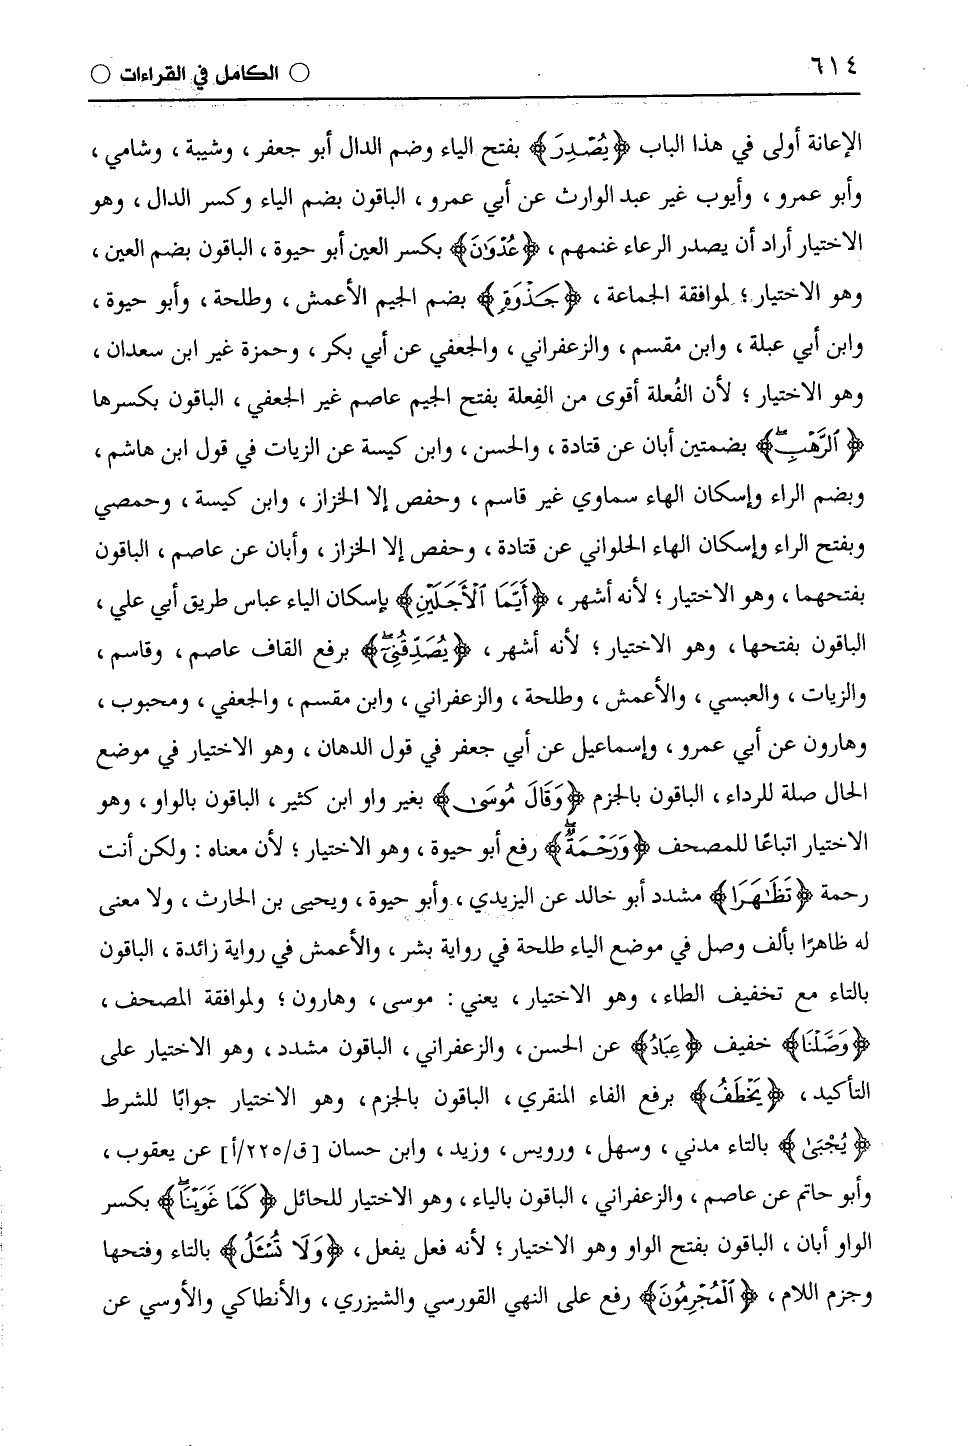 ٦١٤
○ الكامل في القراءات ○
الإعانة أولى في هذا الباب ﴿يُصْدِرَ﴾ بفتح الياء وضم الدال أبو جعفر ، وشيبة ، وشامي ،
وأبو عمرو ، وأيوب غير عبد الوارث عن أبي عمرو ، الباقون بضم الياء وكسر الدال ، وهو
الاختيار أراد أن يصدر الرعاء غنمهم ، ﴿عُدْوَانَ﴾ بكسر العين أبو حيوة ، الباقون بضم العين ،
وهو الاختيار ؛ لموافقة الجماعة ، ﴿جَذْوَةٍ﴾ بضم الجيم الأعمش ، وطلحة ، وأبو حيوة ،
وابن أبي عبلة ، وابن مقسم ، والزعفراني ، والجعفي عن أبي بكر ، وحمزة غير ابن سعدان ،
وهو الاختيار ؛ لأن الفُعلة أقوى من الفِعلة بفتح الجيم عاصم غير الجعفي ، الباقون بكسرها
﴿ٱلرَّهْبِ﴾ بضمتين أبان عن قتادة ، والحسن ، وابن كيسة عن الزيات في قول ابن هاشم ،
وبضم الراء وإسكان الهاء سماوي غير قاسم ، وحفص إلا الخزاز ، وابن كيسة ، وحمصي
وبفتح الراء وإسكان الهاء الحلواني عن قتادة ، وحفص إلا الخزاز ، وأبان عن عاصم ، الباقون
بفتحهما ، وهو الاختيار ؛ لأنه أشهر ، ﴿أَيَّمَا ٱلْأَجَلَيْنِ﴾ بإسكان الياء عباس طريق أبي علي ،
الباقون بفتحها ، وهو الاختيار ؛ لأنه أشهر ، ﴿يُصَدِّقُنِيٓ﴾ برفع القاف عاصم ، وقاسم ،
والزيات ، والعبسي ، والأعمش ، وطلحة ، والزعفراني ، وابن مقسم ، والجعفي ، ومحبوب ،
وهارون عن أبي عمرو ، وإسماعيل عن أبي جعفر في قول الدهان ، وهو الاختيار في موضع
الحال صلة للرداء ، الباقون بالجزم ﴿وَقَالَ مُوسَىٰ﴾ بغير واو ابن كثير ، الباقون بالواو ، وهو
الاختيار اتباعًا للمصحف ﴿وَرَحْمَةً﴾ رفع أبو حيوة ، وهو الاختيار ؛ لأن معناه : ولكن أنت
رحمة ﴿تَظَٰهَرَا﴾ مشدد أبو خالد عن اليزيدي ، وأبو حيوة ، ويحيى بن الحارث ، ولا معنى
له ظاهرًا بألف وصل في موضع الياء طلحة في رواية بشر ، والأعمش في رواية زائدة ، الباقون
بالتاء مع تخفيف الظاء ، وهو الاختيار ، يعني : موسى ، وهارون ؛ ولموافقة المصحف ،
﴿وَصَّلْنَا﴾ خفيف ﴿عِبَادُ﴾ عن الحسن ، والزعفراني ، الباقون مشدد ، وهو الاختيار على
التأكيد ، ﴿يَخْطَفُ﴾ برفع الفاء المنقري ، الباقون بالجزم ، وهو الاختيار جوابًا للشرط
﴿يُجْبَىٰ﴾ بالتاء مدني ، وسهل ، ورويس ، وزيد ، وابن حسان [ق/٢٢٥/أ] عن يعقوب ،
وأبو حاتم عن عاصم ، والزعفراني ، الباقون بالياء ، وهو الاختيار للحائل ﴿كَمَا غَوَيْنَا﴾ بكسر
الواو أبان ، الباقون بفتح الواو وهو الاختيار ؛ لأنه فعل يفعل ، ﴿وَلَا تُسْـَٔلُ﴾ بالتاء وفتحها
وجزم اللام ، ﴿ٱلْمُجْرِمُونَ﴾ رفع على النهي القورسي والشيزري ، والأنطاكي والأوسي عن